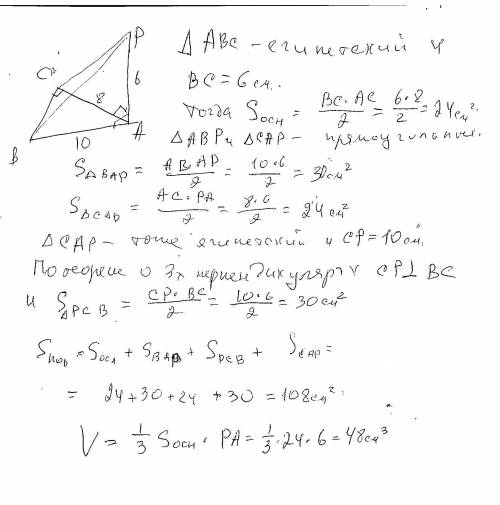 P
C
6
8
A
B
10
Δ ABC - египетский и
BC = 6 см.
тогда Sосн = BC·AC/2 = 6·8/2 = 24 см².
Δ ABP и Δ CAP - прямоугольные.
SΔBAP = AB·AP/2 = 10·6/2 = 30 см²
SΔCAP = AC·PA/2 = 8·6/2 = 24 см²
Δ CAP - тоже египетский и CP = 10 см.
По теореме о 3х перпендикулярах CP ⊥ BC
и SΔPCB = CP·BC/2 = 10·6/2 = 30 см²
Sпов = Sосн + SBAP + SPCB + SCAP =
= 24 + 30 + 24 + 30 = 108 см².
V = 1/3 Sосн · PA = 1/3 · 24 · 6 = 48 см³